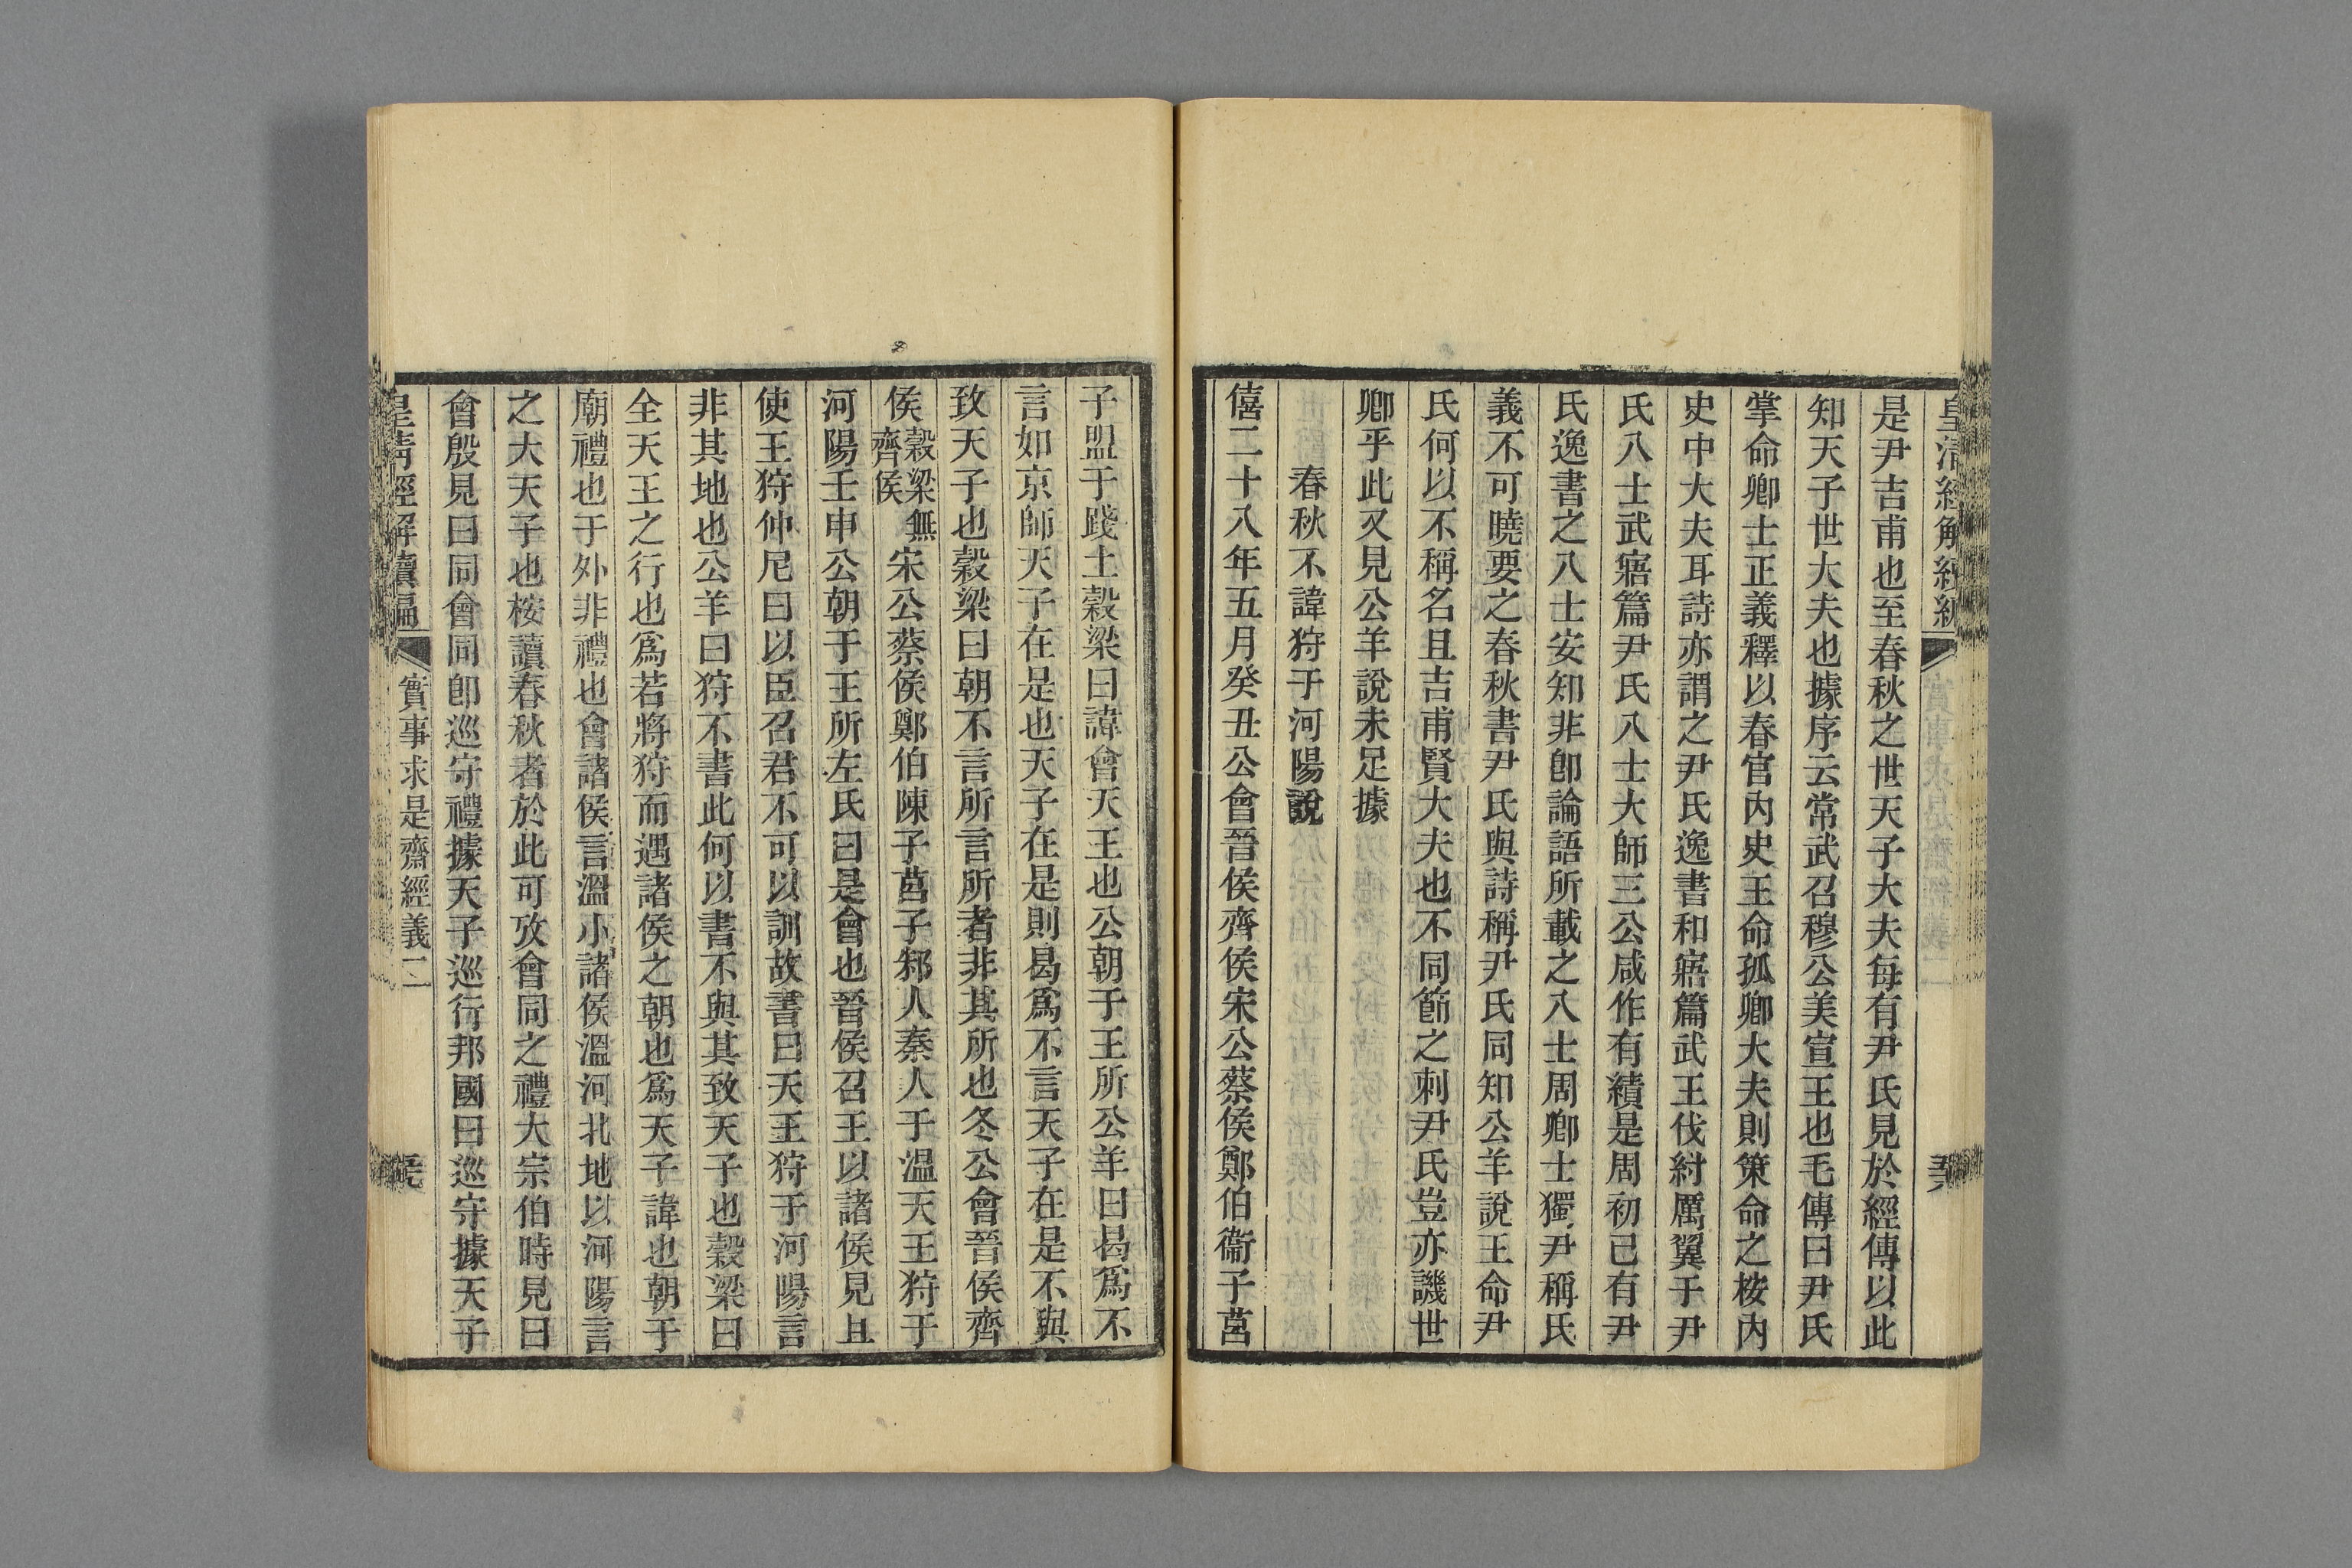 是尹吉甫也至春秋之世天子大夫每有尹氏見於經傳以此
知天子世大夫也據序云常武召穆公美宣王也毛傳曰尹氏
掌命卿士正義釋以春官內史王命孤卿大夫則策命之桉內
史中大夫耳詩亦謂之尹氏逸書和寤篇武王伐紂厲翼于尹
氏八士武寤篇尹氏八士大師三公咸作有績是周初已有尹
氏逸書之八士安知非卽論語所載之八士周卿士獨尹稱氏
義不可曉要之春秋書尹氏與詩稱尹氏同知公羊說王命尹
氏何以不稱名且吉甫賢大夫也不同節之刺尹氏豈亦譏世
卿乎此又見公羊說未足據
春秋不諱狩于河陽說
僖二十八年五月癸丑公會晉侯齊侯宋公蔡侯鄭伯衞子莒
子盟于踐土穀梁曰諱會天王也公朝于王所公羊曰曷爲不
言如京師天子在是也天子在是則曷爲不言天子在是不與
致天子也穀梁曰朝不言所言所者非其所也冬公會晉侯齊
侯穀梁無齊侯宋公蔡侯鄭伯陳子莒子邾人秦人于溫天王狩于
河陽壬申公朝于王所左氏曰是會也晉侯召王以諸侯見且
使王狩仲尼曰以臣召君不可以訓故書曰天王狩于河陽言
非其地也公羊曰狩不書此何以書不與其致天子也穀梁曰
全天王之行也爲若將狩而遇諸侯之朝也爲天子諱也朝于
廟禮也于外非禮也會諸侯言溫小諸侯溫河北地以河陽言
之大天子也桉讀春秋者於此可攷會同之禮大宗伯時見曰
會殷見曰同會同卽巡守禮據天子巡行邦國曰巡守據天子
皇淸經解續編 實事求是齋經義二